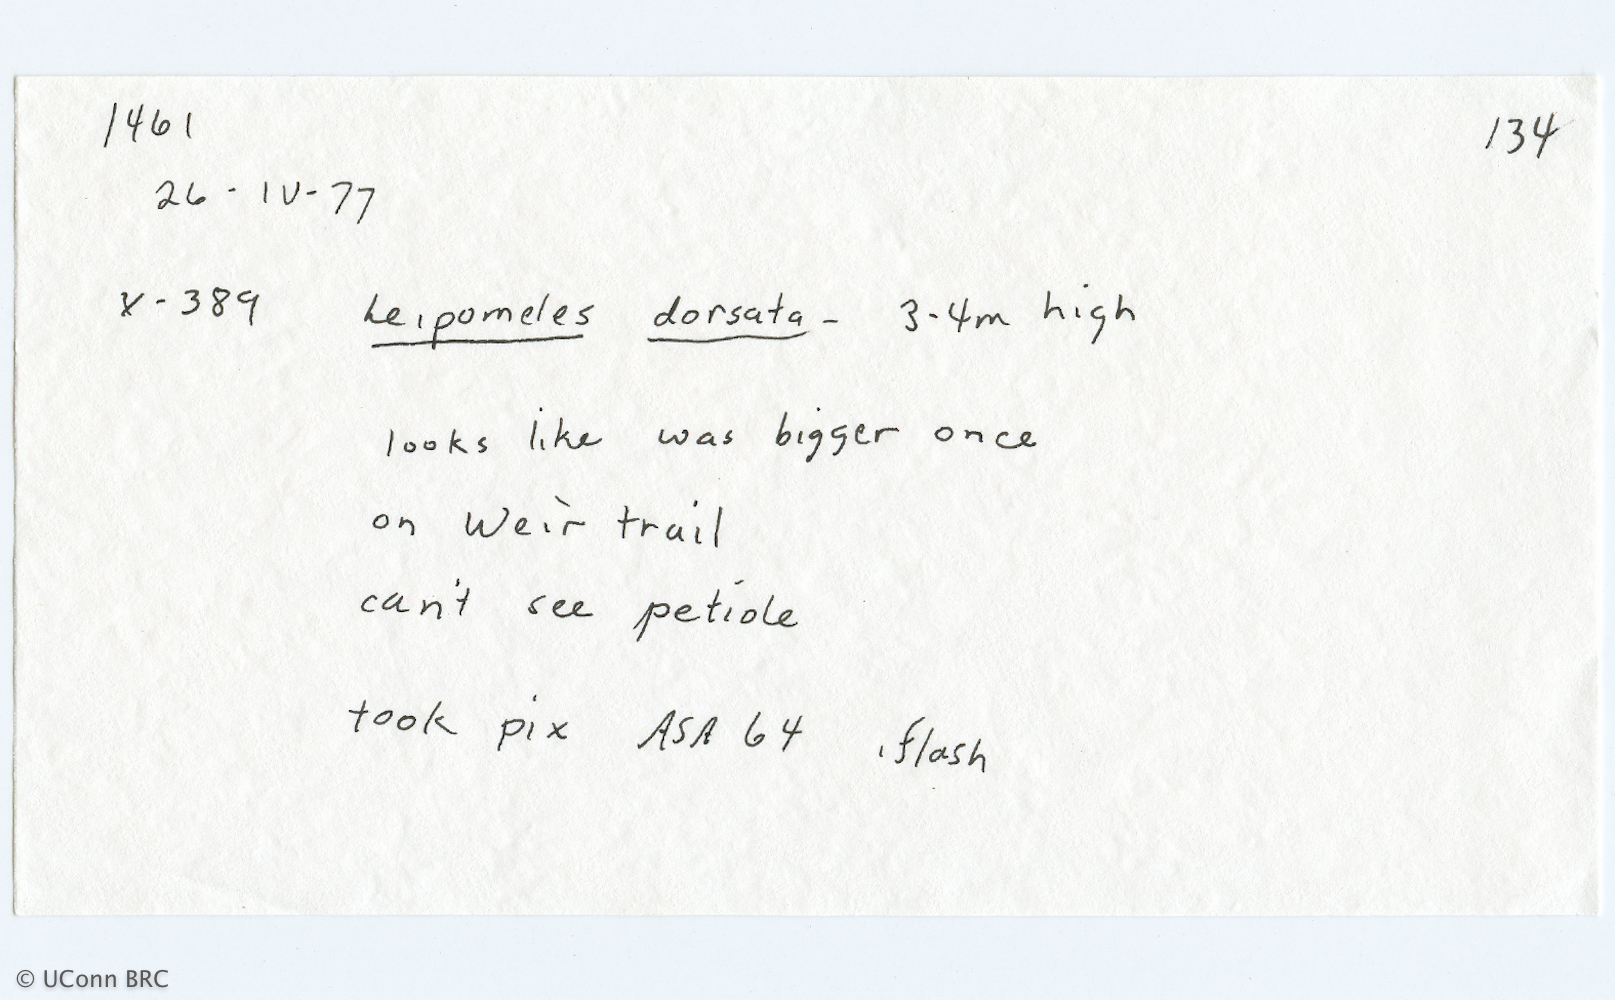 1461
134
26-IV-77
X-389 Leipomeles dorsata - 3-4m high
looks like was bigger once
on Weir trail
can't see petiole
took pix ASA 64 , flash
© UConn BRC